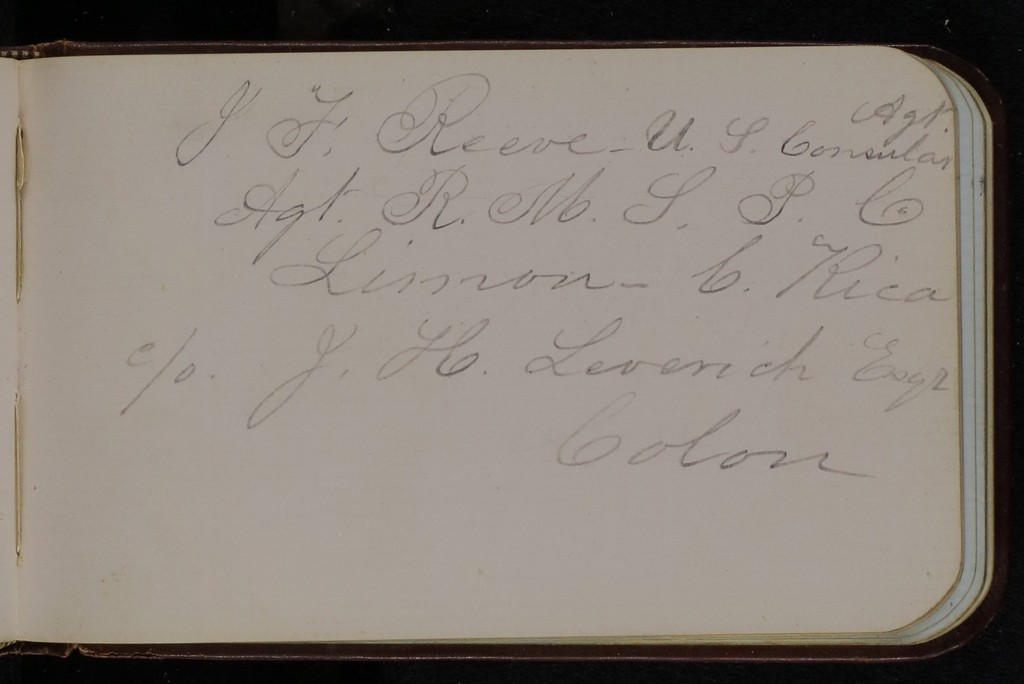 J F. Reeve - U. S. Consular Agt.
Agt. R. M. S. P. Co
Limon - C. Rica
c/o. J. H. Leverich Esqr
Colon